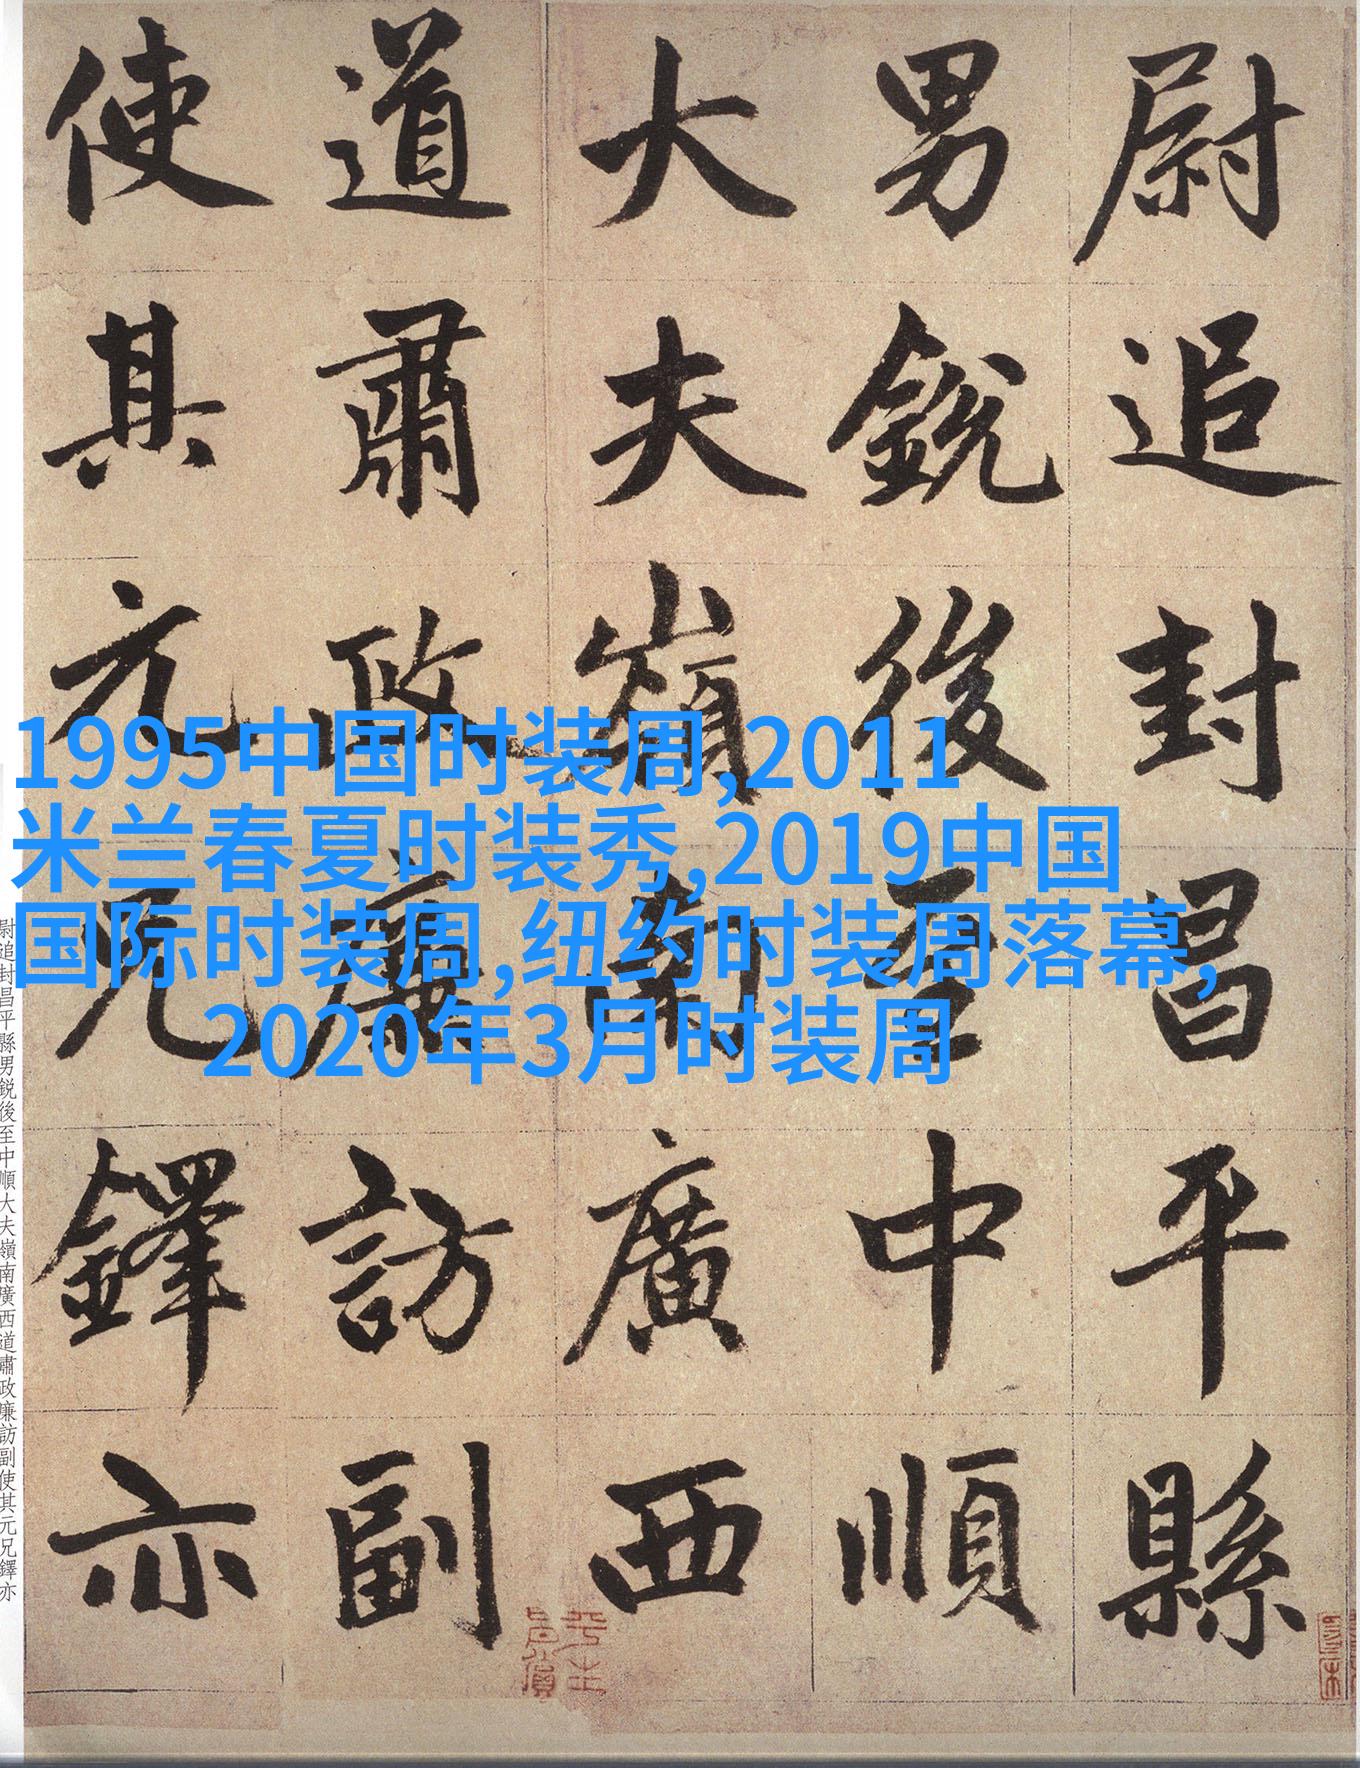 尉追封昌平縣
男銳後至中順
大夫嶺南廣西
道肅政廉訪副
使其元兄鐸亦
1995中国时装周,2011
米兰春夏时装秀,2019中国
国际时装周,纽约时装周落幕,
2020年3月时装周
尉追封昌平縣男鋭後至中順大夫嶺南廣西道肅政廉訪副使其元兄鐸亦